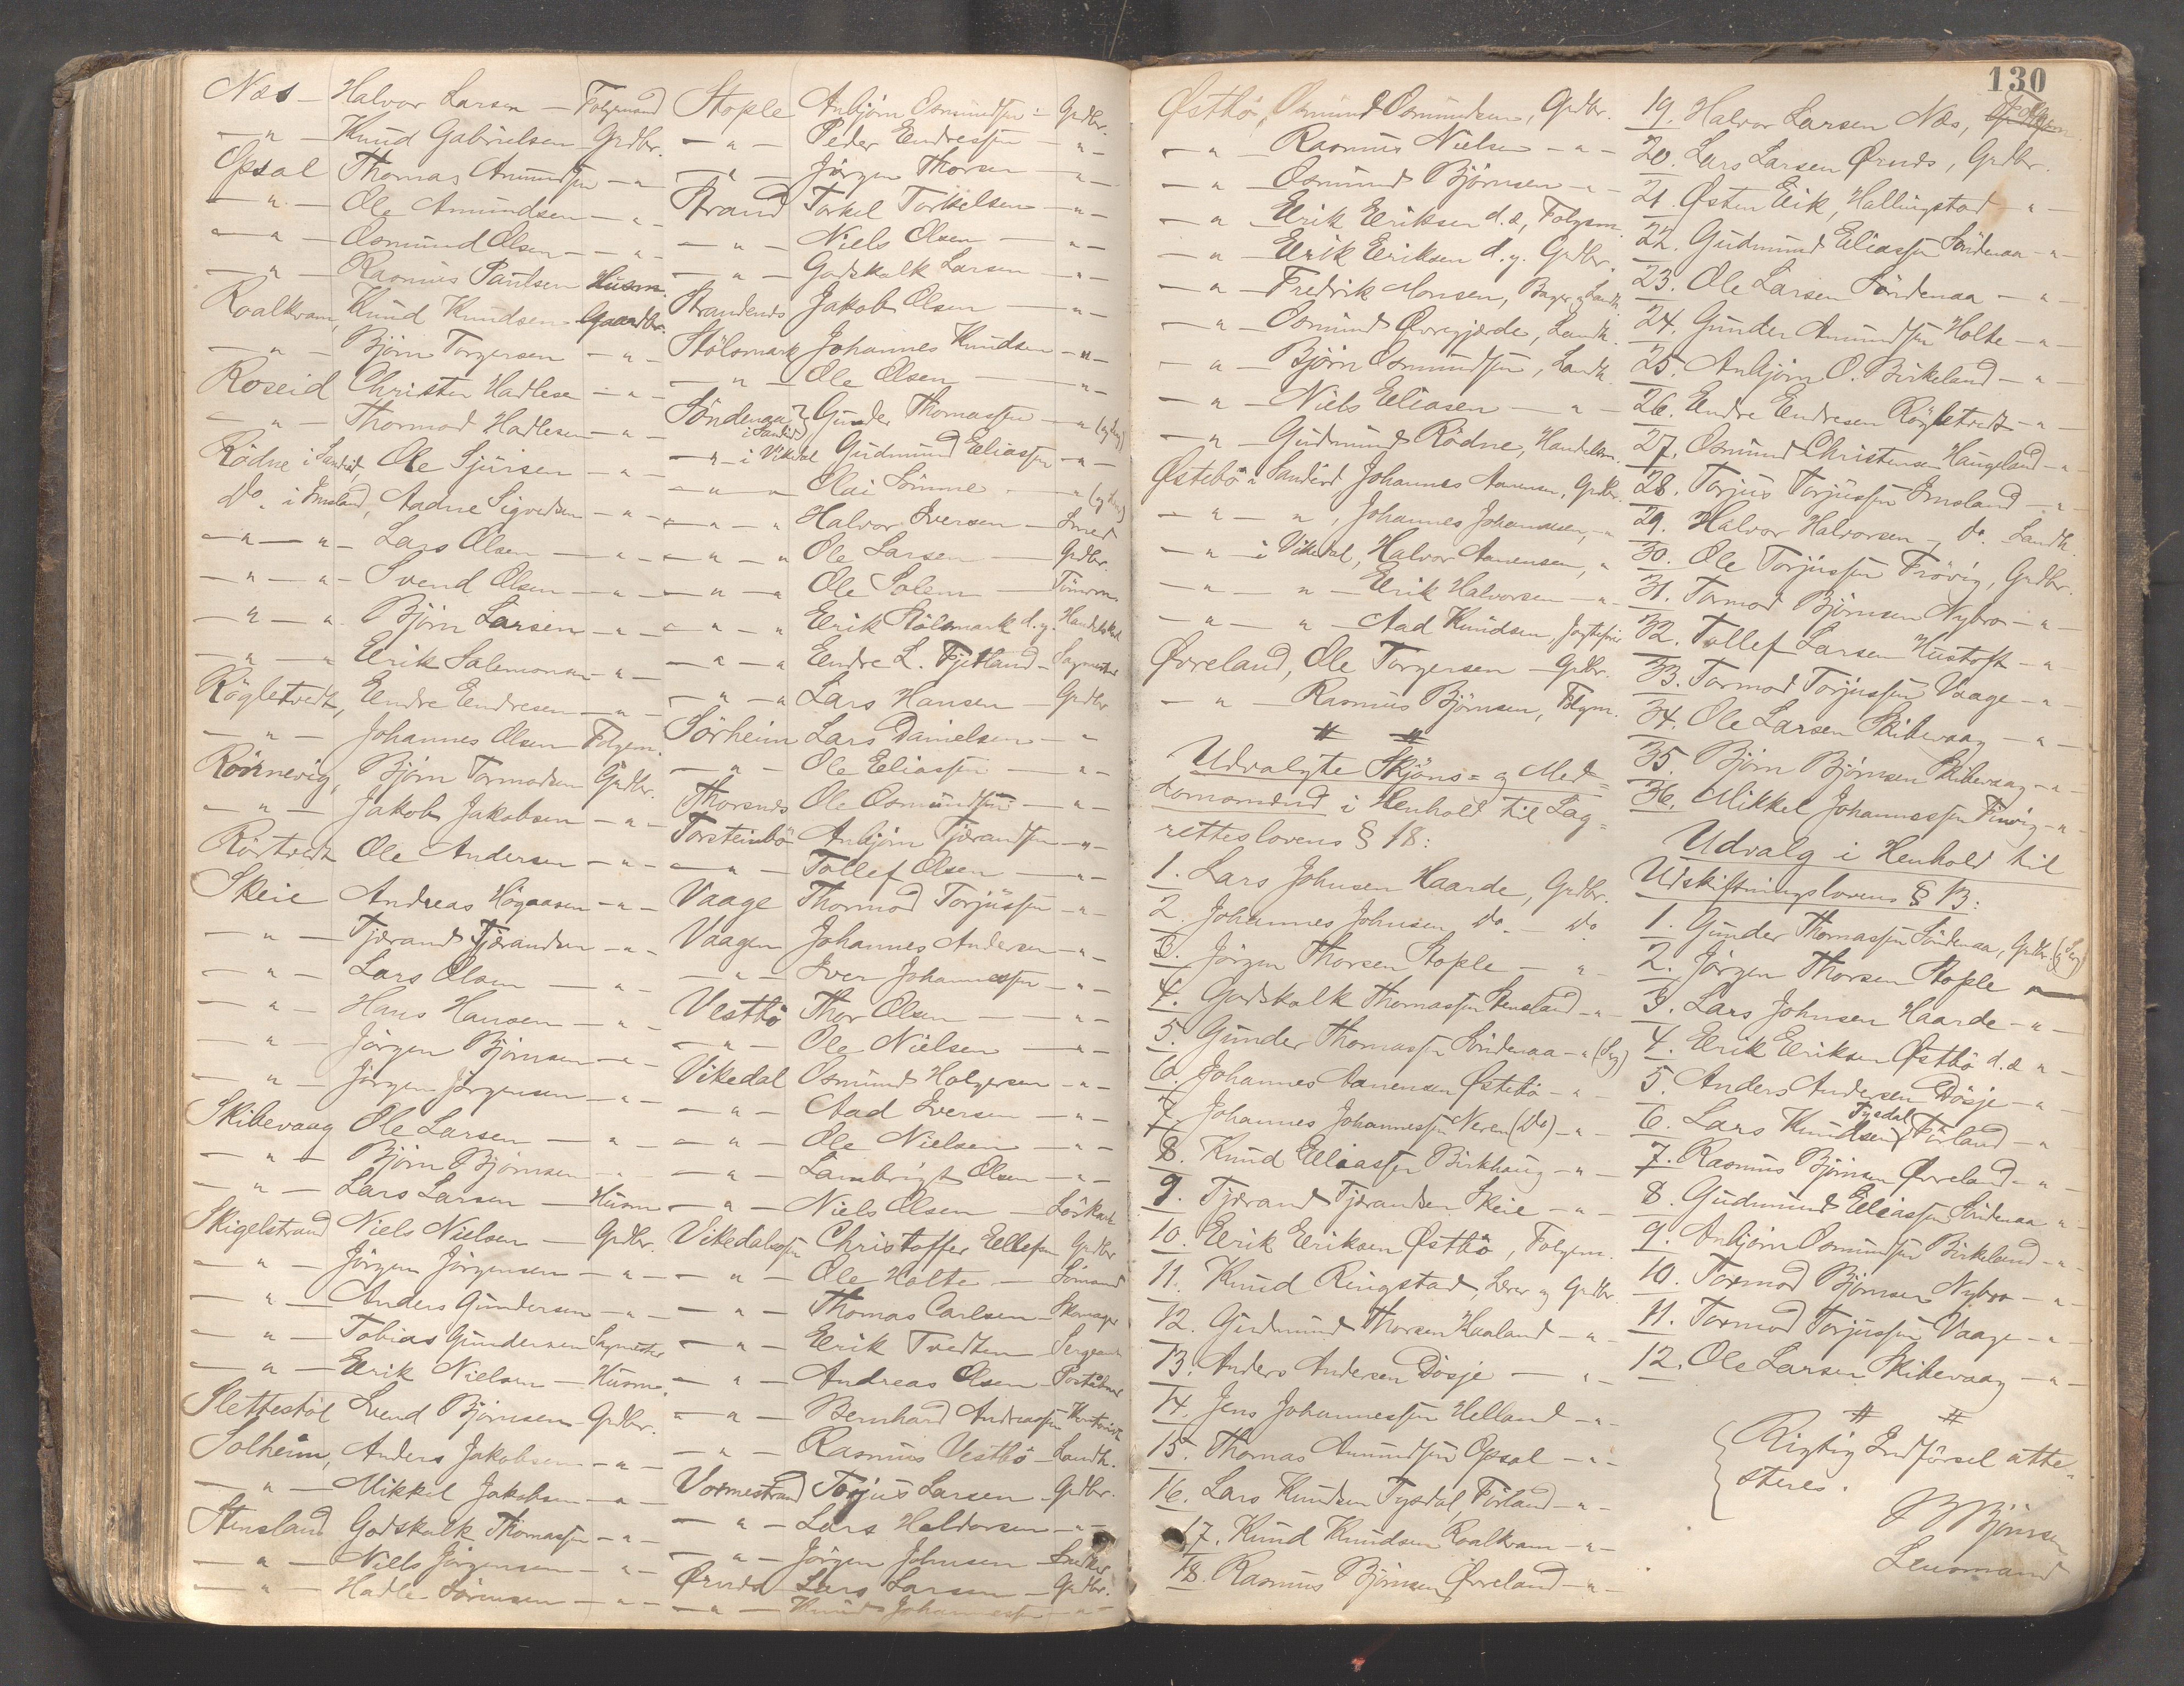 Næs - Halvor Larsen - Folgemand
- " - Knud Gabrielsen - Grdbr.
Opsal Thomas Amundsen - " -
- " - Ole Amundsen - " -
- " - Osmund Olsen - " -
- " - Rasmus Paulsen Husm.
Roalkvam, Knud Knudsen - Gaardbr.
- " - Bjørn Torgersen - " -
Roseid Christen Hadlesen - " -
- " - Thormod Hadlesen - " -
Rødne i Sandeid, Ole Sjursen - " -
Do. i Imsland, Aadne Sigvedsen - " -
- " - " - Lars Olsen - " -
- " - " - Svend Olsen - " -
- " - " Bjørn Larsen - " -
- " - " Eerik Salemonsen - " -
Røgletvedt, Eendre Eendresen - " -
- " - Johannes Olsen - Folgem.
Rørnevig, Bjørn Tormodsen Grdbr.
- " - Jakob Jakobsen - " -
Rørtvedt Ole Andersen - " -
Skeie Andreas Høgaasen - " -
- " - Tjærand Tjærandsen - " -
- " - Lars Olsen - " -
- " - Hans Hansen - " -
- " - Jørgen Bjørnsen - " -
- " - Jørgen Jørgensen - " -
Skibevaag Ole Larsen - " -
- " - Bjørn Bjørnsen - " -
- " - Lars Larsen - Husm
Skigelstrand Niels Nielsen - Grdbr.
- " - Jørgen Jørgensen - " -
- " - Anders Gundersen - " -
- " - Tobias Gundersen Sagmester
- " - Eerik Nielsen - Husm.
Slettestøl Svend Bjørnsen - Grdbr.
Solheim, Anders Jakobsen - " -
- " - Mikkel Jakobsen - " -
Stensland Godskalk Thomassen - " -
- " - Niels Jørgensen - " -
- " - Hadle Sørensen - " -
Stople Anbjørn Osmundsen - Grdbr.
- " - Peder Eendressen - " -
- " - Jørgen Thorsen - " -
Strand Torkel Torkelsen - " -
- " - Niels Olsen - " -
- " - Godskalk Larsen - " -
Strandenes Jakob Olsen - " -
Stølsmark Johannes Knudsen - " -
- " - Ole Olsen - " -
Søndenaa i Sandeid } Gunder Thomassen - "
- " - i Vikedal Gudmund Eeliassen - " -
- " - Olai Sømme - "
- " - " Halvor Iversen - Smed
- " - " Ole Larsen - Grdbr.
- " - " Ole Solem - Tømrm.
- " - " Eerik Stølsmark d.y.
- " - " Eendre L. Fjetland - Sagmester
- " - " Lars Hansen - Grdbr
Sørheim Lars Danielsen - "
- " - Ole Eeliassen - " -
Thorsnes Ole Osmundsen - " -
Torsteinbø Anbjørn Tjærandsen - " -
- " - Tollef Olsen - " -
Vaage Thormod Torjussen - " -
Vaagen Johannes Andersen - " -
- " - Iver Johannessen - " -
Vestbø Thor Olsen - " -
- " - Ole Nielsen - " -
Vikedal Osmund Holgersen - " -
- " - Aad Iversen - " -
- " - Ole Nielsen - " -
- " - Lambrigt Olsen - " -
- " - Niels Olsen - Løskarl
Vikedalsosen Christoffer Eellefsen Grdbr
- " - Ole Holte - Sømand
- " - Thomas Carlsen - Skomager
- " - Eerik Tvedten - Sergeant
- " - Andreas Olsen - Postaabner
- " - Bernhard Andreassen Kontorist
- " - Rasmus Vestbø - Landh.
Vormestrand Torjus Larsen - Grdbr.
- " - Lars Haldorsen - " -
- " - Jørgen Johnsen - Snedker
Ørnæs - Lars Larsen - Grdbr.
- " - Knud Johannessen - " -
130
Østbø, Osmund Osmundsen, Grdbr.
- " - Rasmus Nielsen - " -
- " - Osmund Bjørnsen - " -
- " - Eerik Eeriksen d.æ, Folgem.
- " - Eerik Eeriksen d.y. Grdbr.
- " - Fredrik Monsen, Bager og Landh.
- " - Osmund Øvregjerde, Landh.
- " - Bjørn Osmundsen, Landh.
- " - Niels Eeliasen - " -
- " - Gudmund Rødne, Handelsm.
Østebø i Sandeid Johannes Aanensen, Grdbr.
- " - ", Johannes Johannesen, - "
- " - i Vikedal, Halvor Aanensen, "
- " - " - Eerik Halvorsen - "
- " - " - Aad Knudsen,
Øvreland, Ole Torgersen - Grdbr.
- " - Rasmus Bjørnsen, Folgem.
# #
Udvalgte Skjøns= og Med=
domsmænd i Henhold til Lag=
retteslovens § 18:
1. Lars Johnsen Haarde, Grdbr.
2. Johannes Johnsen do. - do
3. Jørgen Thorsen Stople - " -
4. Godskalk Thomassen Stensland - " -
5. Gunder Thomassen Søndenaa - "
6. Johannes Aanensen Østebø - " -
7. Johannes Johannessen Neren (Do) - " -
8. Knud Eeliassen Birkhaug - " -
9. Tjærand Tjærandsen Skeie - " -
10. Eerik Eeriksen Østbø, Folgem.
11. Knud Ringstad, Lærer og Grdbr.
12. Gudmund Thorsen Haaland - " -
13. Anders Andersen Døsje - " -
14. Jens Johannessen Helland - " -
15. Thomas Amundsen Opsal - " -
16. Lars Knudsen Tysdal, Førland - " -
17. Knud Knudsen Roalkvam - " -
18. Rasmus Bjørnsen Øvreland - " -
19. Halvor Larsen Næs,
20. Lars Larsen Ørnæs, Grdbr.
21. Østen Eeik, Hallingstad - " -
22. Gudmund Eeliassen Søndenaa - " -
23. Ole Larsen Søndenaa - " -
24. Gunder Amundsen Holte - " -
25. Anbjørn O. Birkeland - " -
26. Eendre Eendresen Røgletvedt - " -
27. Osmund Christensen Haugeland - "
28. Torjus Torjussen Imsland - " -
29. Halvor Halvorsen - do. Landh.
30. Ole Torjussen Frøvig, Grdbr.
31. Tormod Bjørnsen Nybro - " -
32. Tollef Larsen Hustoft - " -
33. Tormod Torjussen Vaage - " -
34. Ole Larsen Skibevaag - " -
35. Bjørn Bjørnsen Skibevaag - " -
36. Mikkel Johannessen Finvig - " -
Udvalg i Henhold til
Udskiftningslovens § 13:
1. Gunder Thomassen Søndenaa, Grdbr.
2. Jørgen Thorsen Stople -
3. Lars Johnsen Haarde - " -
4. Eerik Eeriksen Østbø d.æ " -
5. Anders Andersen Døsje - " -
6. Lars Knudsen Tysdal, Førland - "
7. Rasmus Bjørnsen Øvreland - " -
8. Gudmund Eeliassen Søndenaa " -
9. Anbjørn Osmundsen Birkeland - " -
10. Tormod Bjørnsen Nybro - " -
11. Tormod Torjussen Vaage - " -
12. Ole Larsen Skibevaag - " -
# #
Rigtig Indførsel atte=
steres.
B Bjørnsen
Lensmand